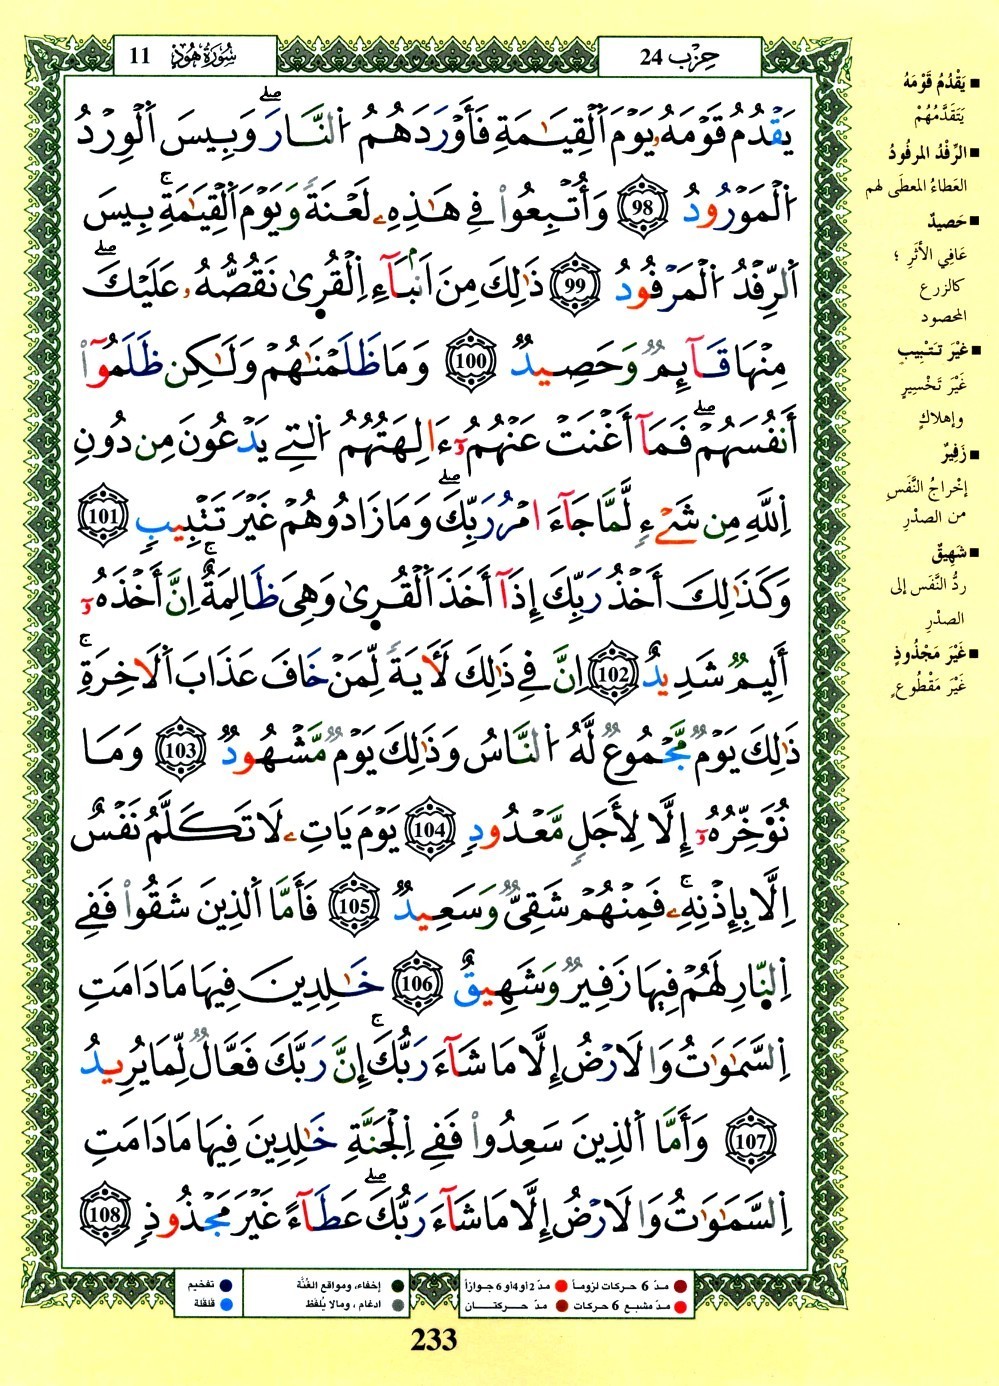 سُورَةُ هُودٍ 11
حِزْب 24
يَقْدُمُ قَوْمَهُۥ يَوْمَ اَ۬لْقِيَٰمَةِ فَأَوْرَدَهُمُ اُ۬لنَّارَۖ وَبِيسَ اَ۬لْوِرْدُ
اُ۬لْمَوْرُودُ 98 وَأُتْبِعُواْ فِے هَٰذِهِۦ لَعْنَةٗ وَيَوْمَ اَ۬لْقِيَٰمَةِۚ بِيسَ
اَ۬لرِّفْدُ اُ۬لْمَرْفُودُ 99 ذَٰلِكَ مِنَ اَنۢبَآءِ اِ۬لْقُر۪ىٰ نَقُصُّهُۥ عَلَيْكَۖ
مِنْهَا قَآئِمٞ وَحَصِيدٞ 100 وَمَا ظَلَمْنَٰهُمْ وَلَٰكِن ظَلَمُوٓاْ
أَنفُسَهُمْۖ فَمَآ أَغْنَتْ عَنْهُمُۥٓ ءَالِهَتُهُمُ اُ۬لتِے يَدْعُونَ مِن دُونِ
اِ۬للَّهِ مِن شَےْءٖ لَّمَّا جَآءَ امْرُ رَبِّكَۖ وَمَا زَادُوهُمْ غَيْرَ تَتْبِيبٖ 101
وَكَذَٰلِكَ أَخْذُ رَبِّكَ إِذَآ أَخَذَ اَ۬لْقُر۪ىٰ وَهِيَ ظَٰلِمَةٌۚ اِنَّ أَخْذَهُۥٓ
أَلِيمٞ شَدِيدٌ 102 اِنَّ فِے ذَٰلِكَ لَأٓيَةٗ لِّمَنْ خَافَ عَذَابَ اَ۬لَاخِرَةِۚ
ذَٰلِكَ يَوْمٞ مَّجْمُوعٞ لَّهُ اُ۬لنَّاسُ وَذَٰلِكَ يَوْمٞ مَّشْهُودٞ 103 وَمَا
نُؤَخِّرُهُۥٓ إِلَّا لِأَجَلٖ مَّعْدُودٖ 104 يَوْمَ يَاتِۦ لَا تَكَلَّمُ نَفْسٌ
اِلَّا بِإِذْنِهِۦۚ فَمِنْهُمْ شَقِيّٞ وَسَعِيدٞ 105 فَأَمَّا اَ۬لذِينَ شَقُواْ فَفِے
اِ۬لنّ۪ارِ لَهُمْ فِيهَا زَفِيرٞ وَشَهِيقٌ 106 خَٰلِدِينَ فِيهَا مَا دَامَتِ
اِ۬لسَّمَٰوَٰتُ وَالَارْضُ إِلَّا مَا شَآءَ رَبُّكَۚ إِنَّ رَبَّكَ فَعَّالٞ لِّمَا يُرِيدُ
107 وَأَمَّا اَ۬لذِينَ سَعِدُواْ فَفِے اِ۬لْجَنَّةِ خَٰلِدِينَ فِيهَا مَا دَامَتِ
اِ۬لسَّمَٰوَٰتُ وَالَارْضُ إِلَّا مَا شَآءَ رَبُّكَۖ عَطَآءً غَيْرَ مَجْذُوذٖ 108
■ يَقْدُمُ قَوْمَهُ
يَتَقَدَّمُهُمْ
■ الرِّفْدُ المرفُودُ
العَطاءُ المعطَى لهم
■ حَصيدٌ
عَافِي الأَثَرِ ؛
كالزرع
المحصود
■ غَيْرَ تَتْبِيبٍ
غَيْرَ تَخْسِيرٍ
وإهلاكٍ
■ زَفِيرٌ
إخْراجُ النَّفَسِ
من الصدْرِ
■ شَهِيقٌ
ردُّ النَّفَسِ إلى
الصدْرِ
■ غَيْرَ مَجْذُوذٍ
غَيْرَ مَقْطُوعٍ
مدّ 6 حركات لزوماً ● مدّ 2 أو 4 أو 6 جوازاً
مدّ مشبع 6 حركات ● مدّ حركتان
إخفاء، ومواقع الغُنَّة
ادغام ، ومالا يُلفظ
تفخيم
قلقلة
233